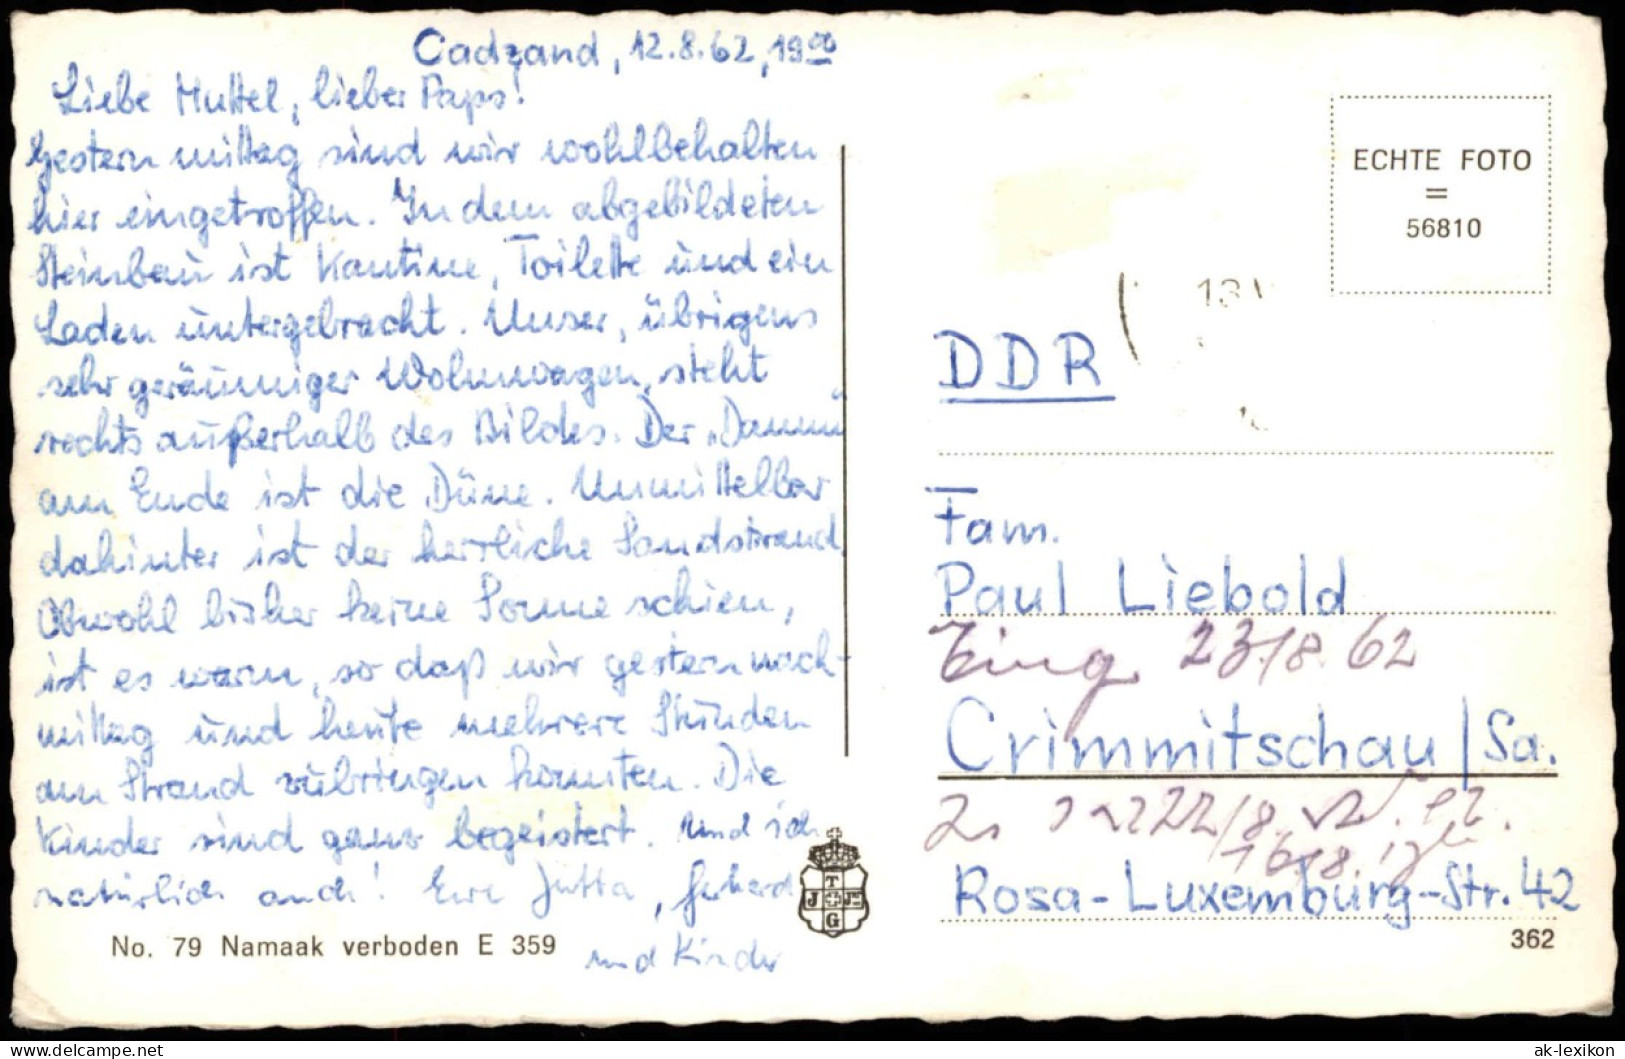 Cadzand, 12.8.62, 19⁰⁰
Liebe Muttel, lieber Paps!
Gestern mittag sind wir wohlbehalten
hier eingetroffen. In dem abgebildeten
Steinbau ist Kantine, Toilette und ein
Laden untergebracht. Unser, übrigens
sehr geräumiger Wohnwagen, steht
rechts außerhalb des Bildes. Der „Damm“
am Ende ist die Düne. Unmittelbar
dahinter ist der herrliche Sandstrand.
Obwohl bisher keine Sonne schien,
ist es warm, so daß wir gestern nach-
mittag und heute mehrere Stunden
am Strand zubringen konnten. Die
Kinder sind ganz begeistert. Und ich
natürlich auch! Eure Jutta, Gerhard
und Kinder
No. 79 Namaak verboden E 359
T
J J
G
ECHTE FOTO
=
56810
13
DDR
Fam.
Paul Liebold
Eing. 23/8. 62
Crimmitschau/Sa.
22/8.
16/8.
Rosa-Luxemburg-Str. 42
362
ak-lexikon